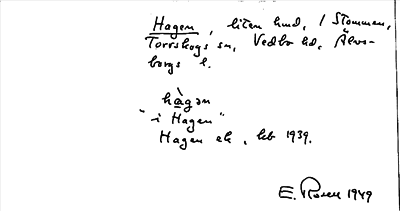 Hagen, liten hmd, i Stommen,
Torrskogs sn, Vedbo hd, Älvs-
borgs l.
hàgən
"i Hagen"
Hagen ek, kb 1939.
E. Rosell 1949